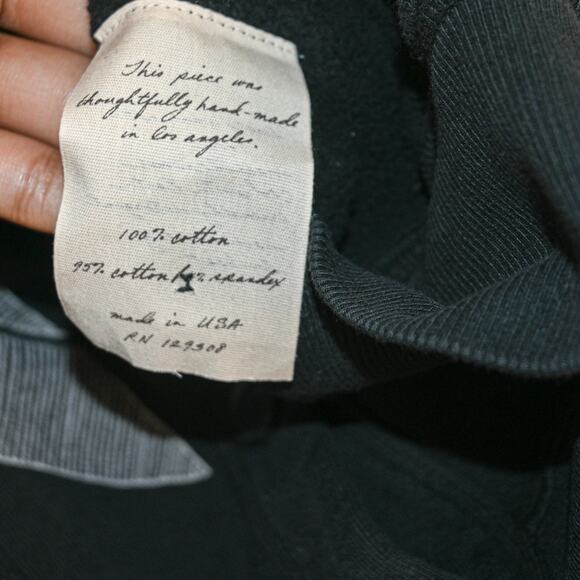 This piece was
thoughtfully hand-made
in los angeles.
100% cotton
95% cotton % spandex
made in USA
RN 129308